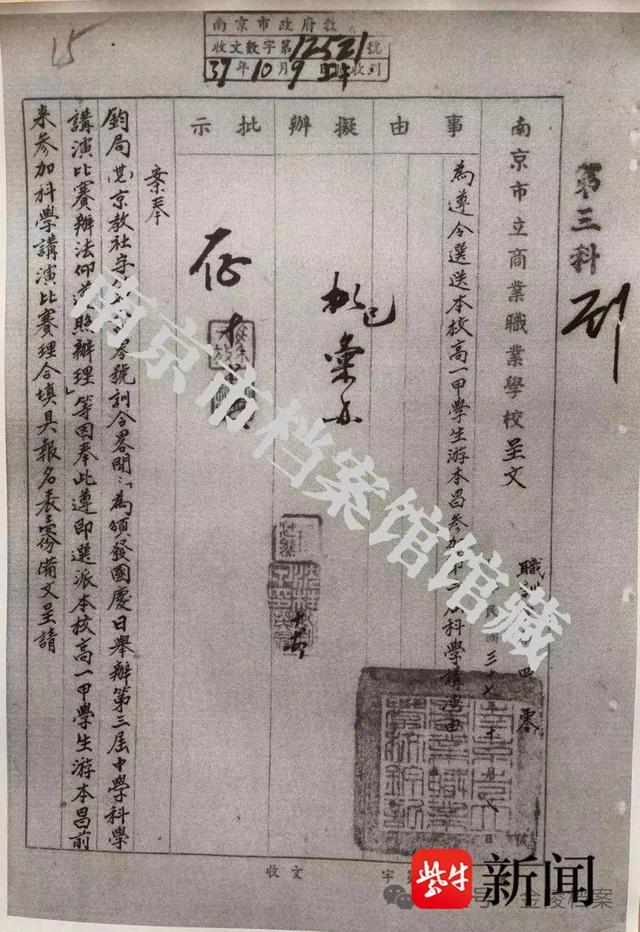 15
南京市政府教
收文數字第12521號
37年10月9日 收到
第三科
到
南京市立商業職業學校呈文
事由
擬辦
批示
為遵令選送本校高一甲學生游本昌參加第三屆科學講演由
三十七年十月八日
彙
案奉
鈞局 京教社字 號訓令畧開：「為頒發國慶日舉辦第三屆中學科學
講演比賽辦法仰遵照辦理」等因奉此遵即選派本校高一甲學生游本昌前
來參加科學講演比賽理合填具報名表壹份備文呈請
收文 字
南京市档案馆馆藏
紫牛新闻
号 金陵档案